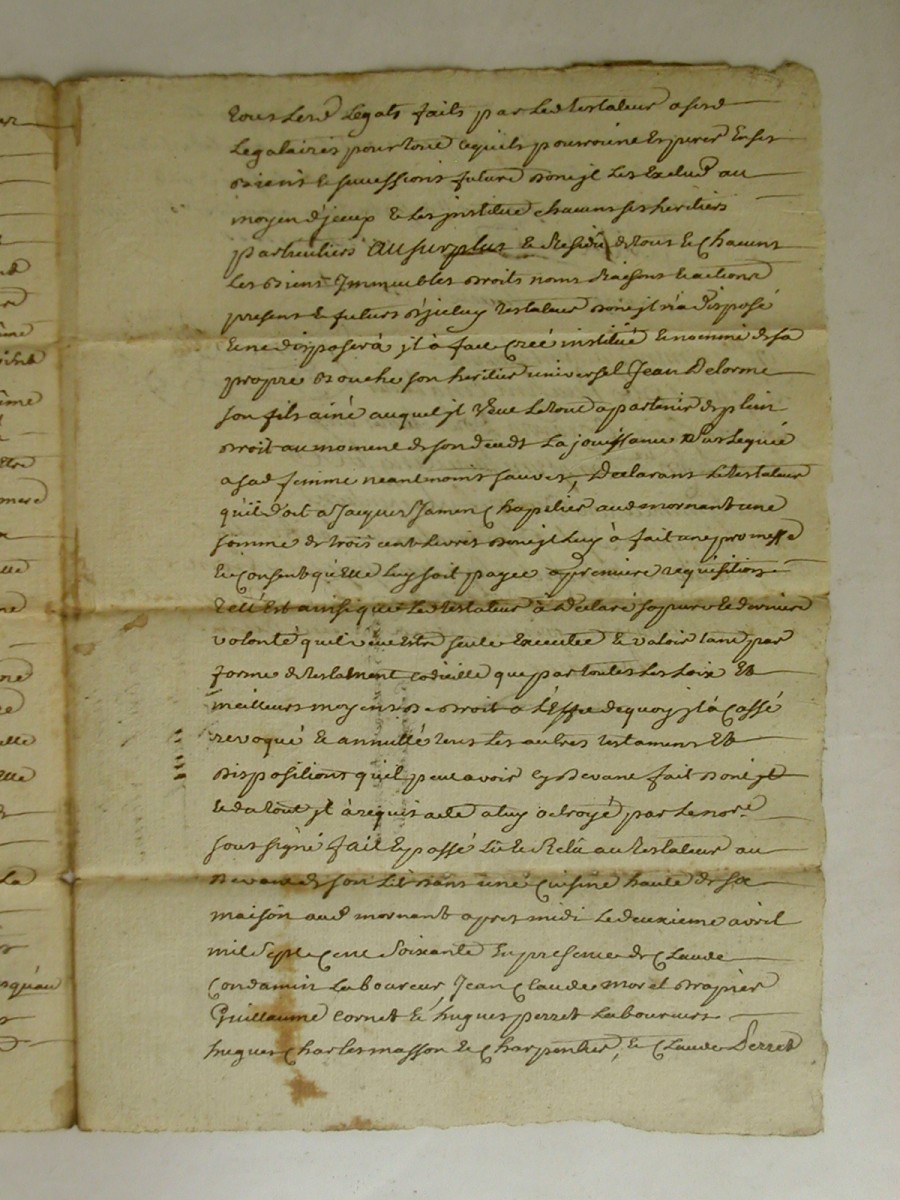 tous lesd legats faits par led testateur a sesd
legataires pour tout ce quils pourroint esperer en ses
biens & succession future dont jl les exclud au
moyen d'jceux & les jnstitue chacuns ses heritiers
particuliers au surplus & residu de tous & chacuns
les biens jmmeubles droits noms raisons & actions
present & futurs d'jceluy testateur dont jl n'a disposé
& ne disposerà jl à fait creé institué & nommé de sa
propre bouche son heritier universel Jean Delorme
son fils ainé auquel jl veut le tout apartenir de plein
droit au moment de son deceds la jouissance
a sad femme neantmoins sauves, declarant le testateur
qu'il doit a Jacques Jamen chapelier aud mornant une
somme de trois cent livres dont jl luy à fait une promesse
& consent qu'elle luy soit payee a premiere requisition
telle est ainsi que led testateur à declaré sa pure & derniere
volonté quil veut estre seule executée & valoir tant par
forme de testament codicille que par toutes les loix &
meilleurs moyens de droit a l'effet de quoy jl à cassé
revoqué & annullé tous les autres testaments &
dispositions qu'il peut avoir cy devant fait dont jl
& du tout jl à requis acte a luy octroyé par le nore
soussigné fait & passé lu & relû au testateur au
devant de son lit dans une cuisine haute de sa
maison aud mornant apres midi le deuxieme avril
mil sept cent soixante en presence de Claude
Condamin laboureur Jean Claude Morel drapier
Guillaume Cornet & hugues perret laboureurs
hugues Charles masson & charpentier, & Claude Perret